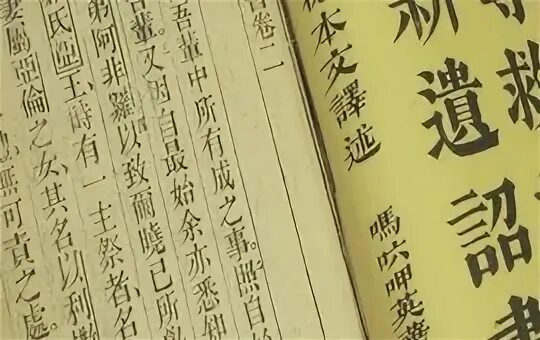 救
新遺詔書
本文譯述
嗎呷英華
卷二
吾輩中所有成之事。照自
輩。又因自最始余亦悉
弟阿非羅以致爾曉已所
氏亞王時有一主祭者名
妻屬亞倫之女其名以利
無可責之處。